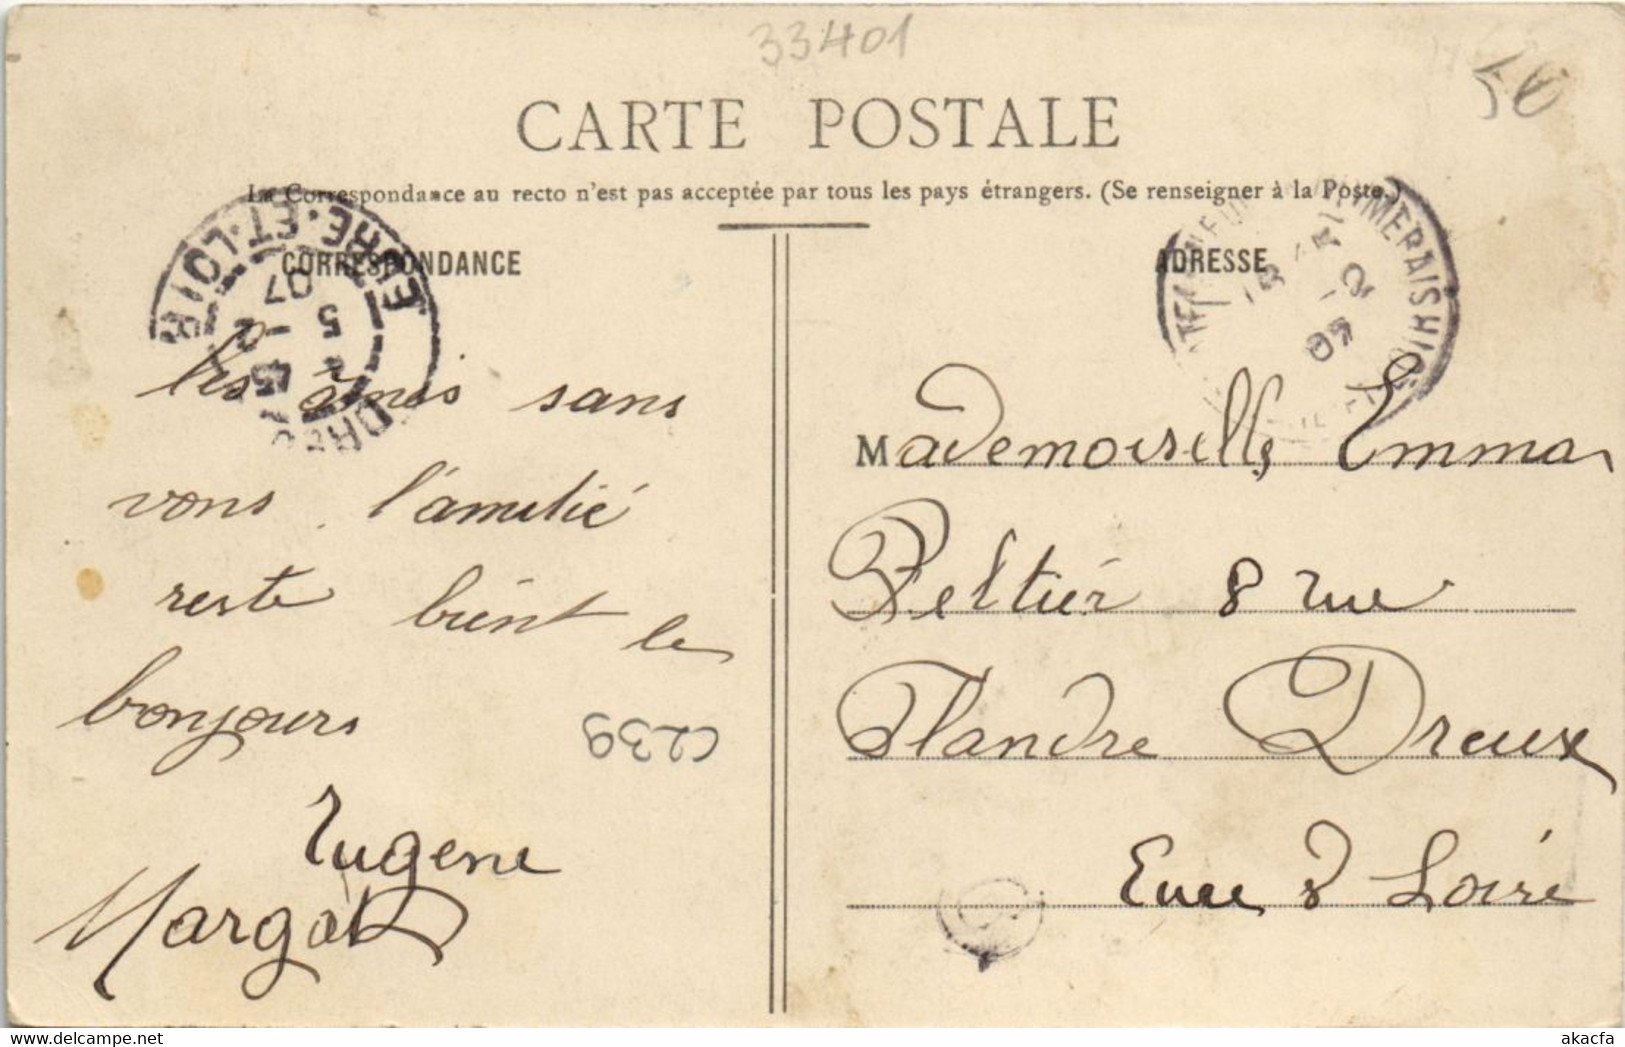 33401
5€
CARTE POSTALE
La Correspondance au recto n'est pas acceptée par tous les pays étrangers. (Se renseigner à la Poste.)
CORRESPONDANCE
ADRESSE
EURE-ET-LOIR
5 -2
07
les âmes sans
vons. l'amitié
reste bient le
bonjours
Eugene
Margot
CL39
Mademoiselle Emma
Peltier 8 rue
Flandre Dreux
Eure & Loire
akacfa